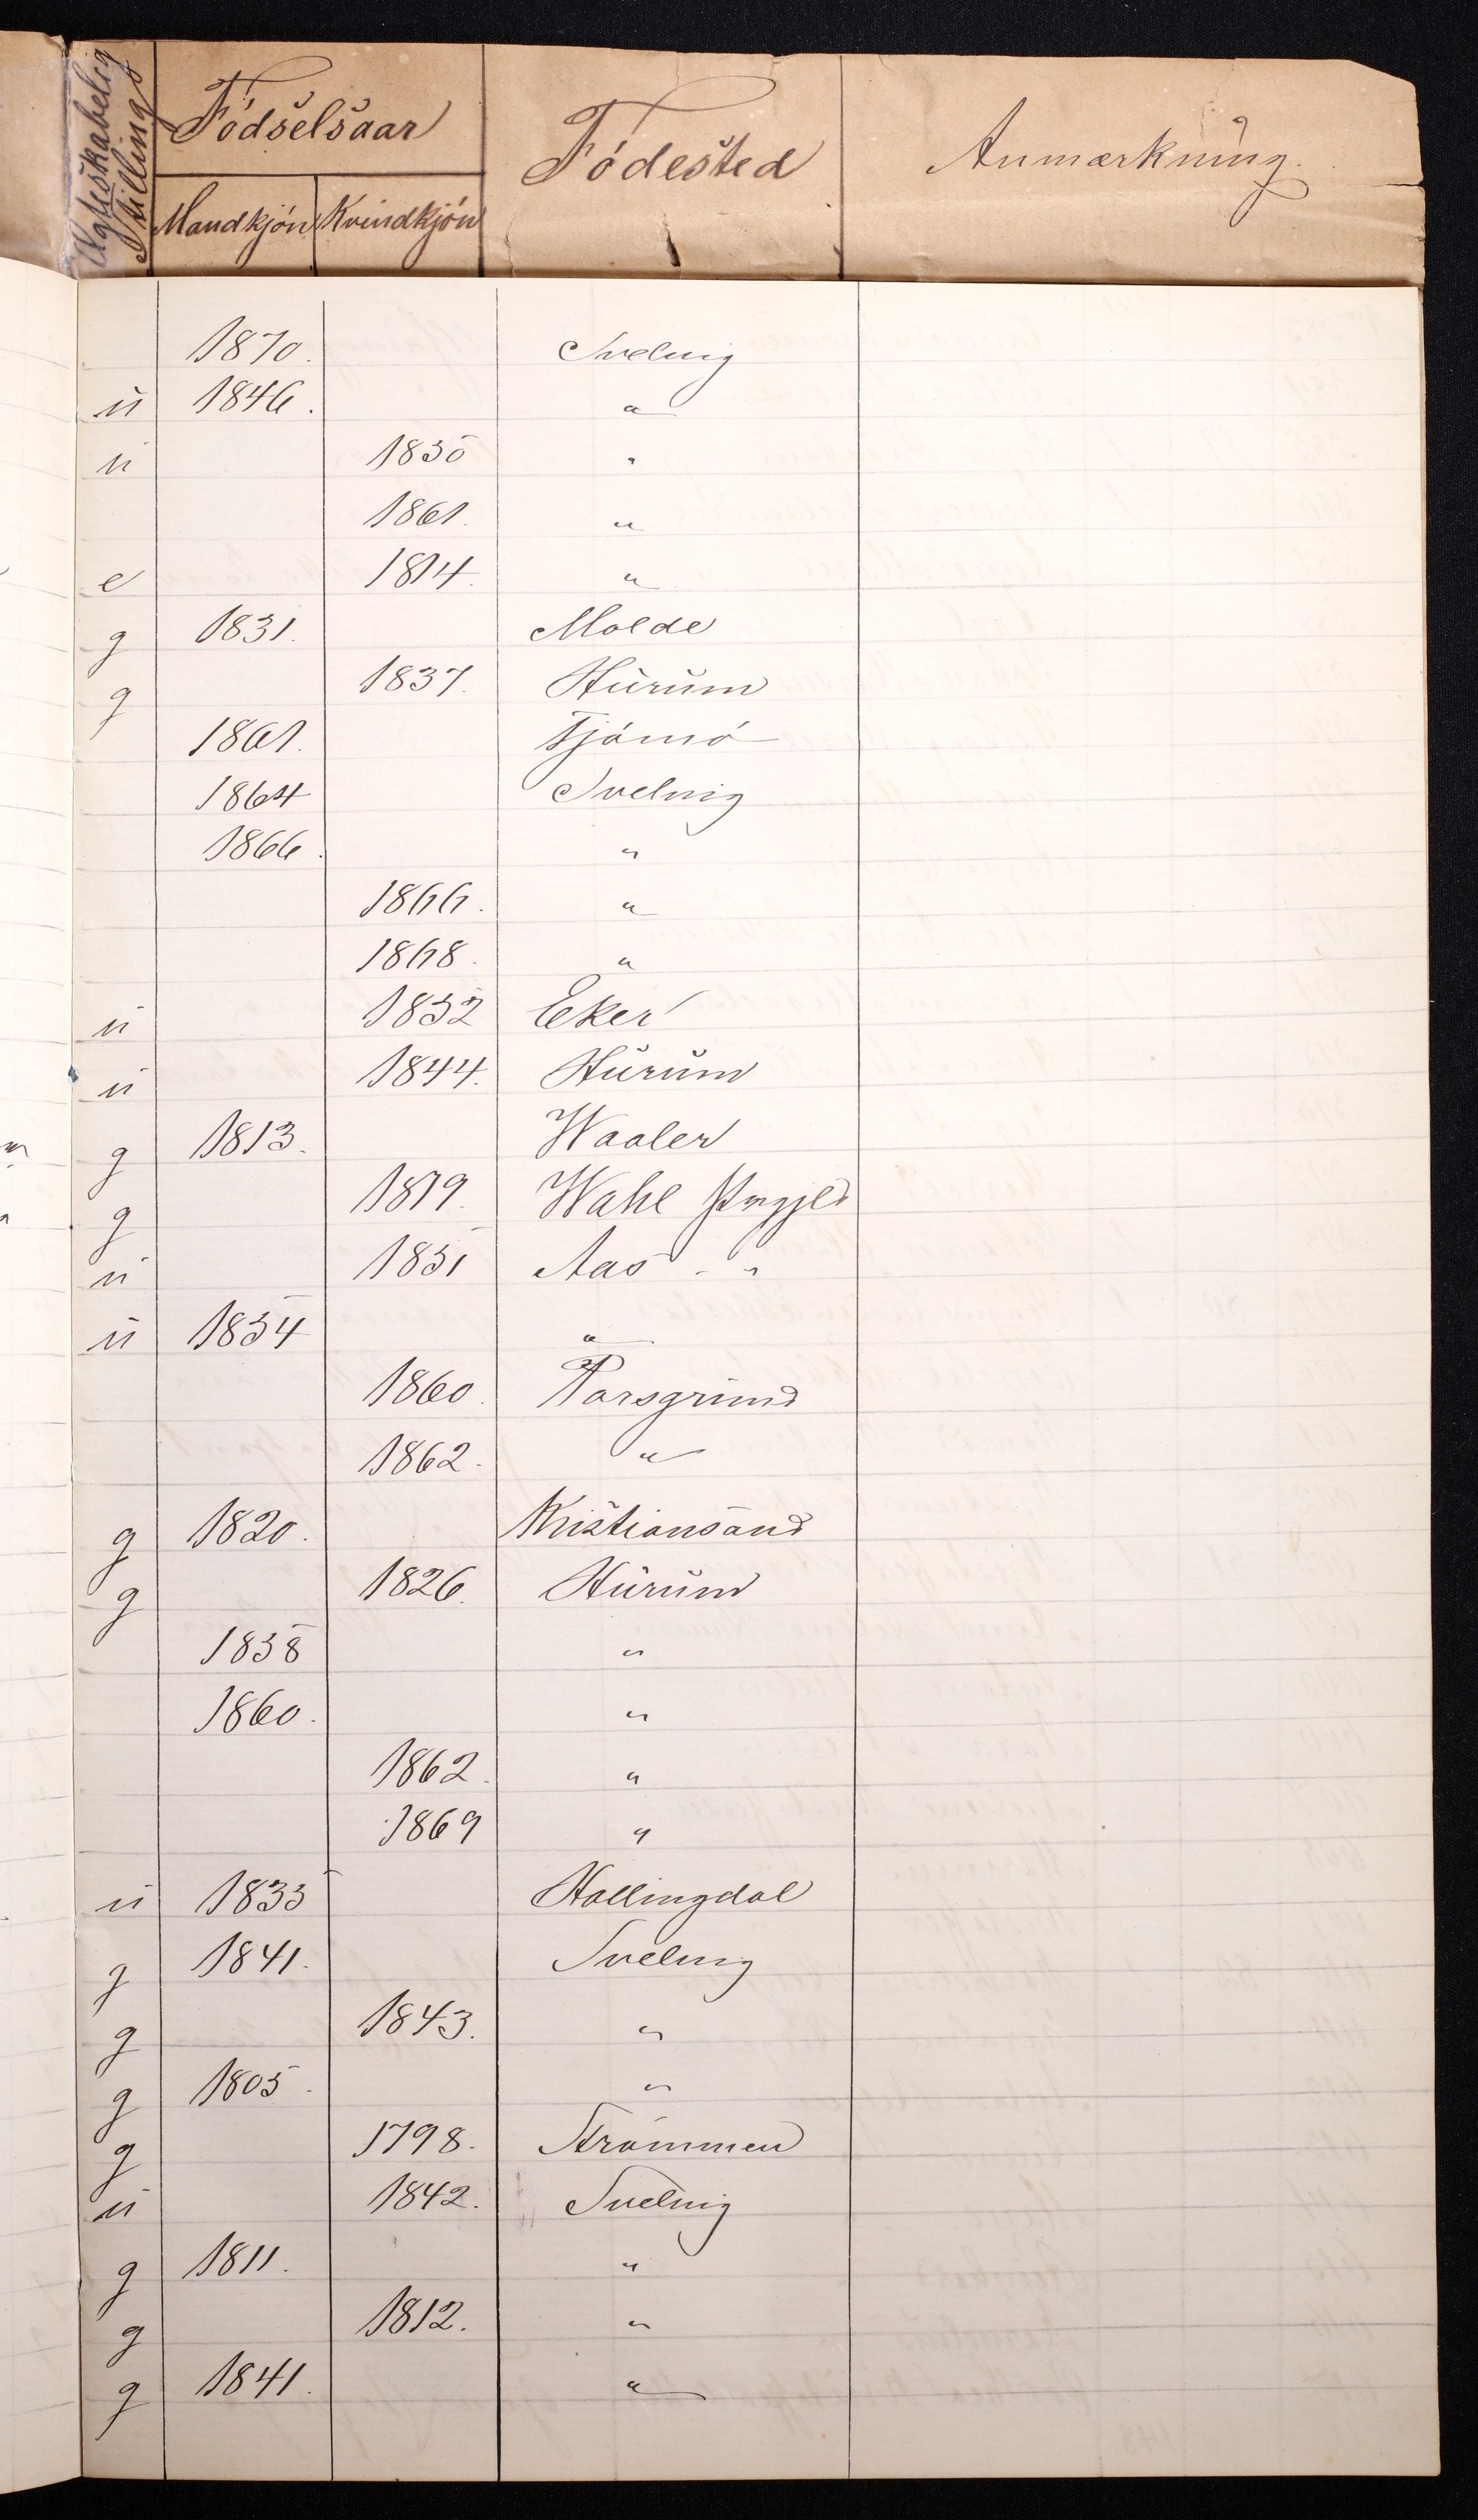 Ægteskabelig Stilling
Fódselsaar
Mandkjón Kvindkjón
Fódested
Anmærkning.
1870. Svelvig
u 1846. "
u 1835 "
1861. "
e 1814. "
g 1831. Molde
g 1837. Hurum
1861. Tjómó
1864 Svelvig
1866. "
1866. "
1868. "
u 1852 Eker
u 1844. Hurum
g 1813. Waaler
g 1819. Wahl
u 1851 Aas - "
u 1854 "
1860. Porsgrund
1862. "
g 1820. Kristiansand
g 1826. Hurum
1858 "
1860. "
1862. "
1869 "
u 1835 Hallingdal
g 1841. Svelvig
g 1843. "
g 1805. "
g 1798. Strómmen
u 1842. Svelvig
g 1811. "
g 1812. "
g 1841. "